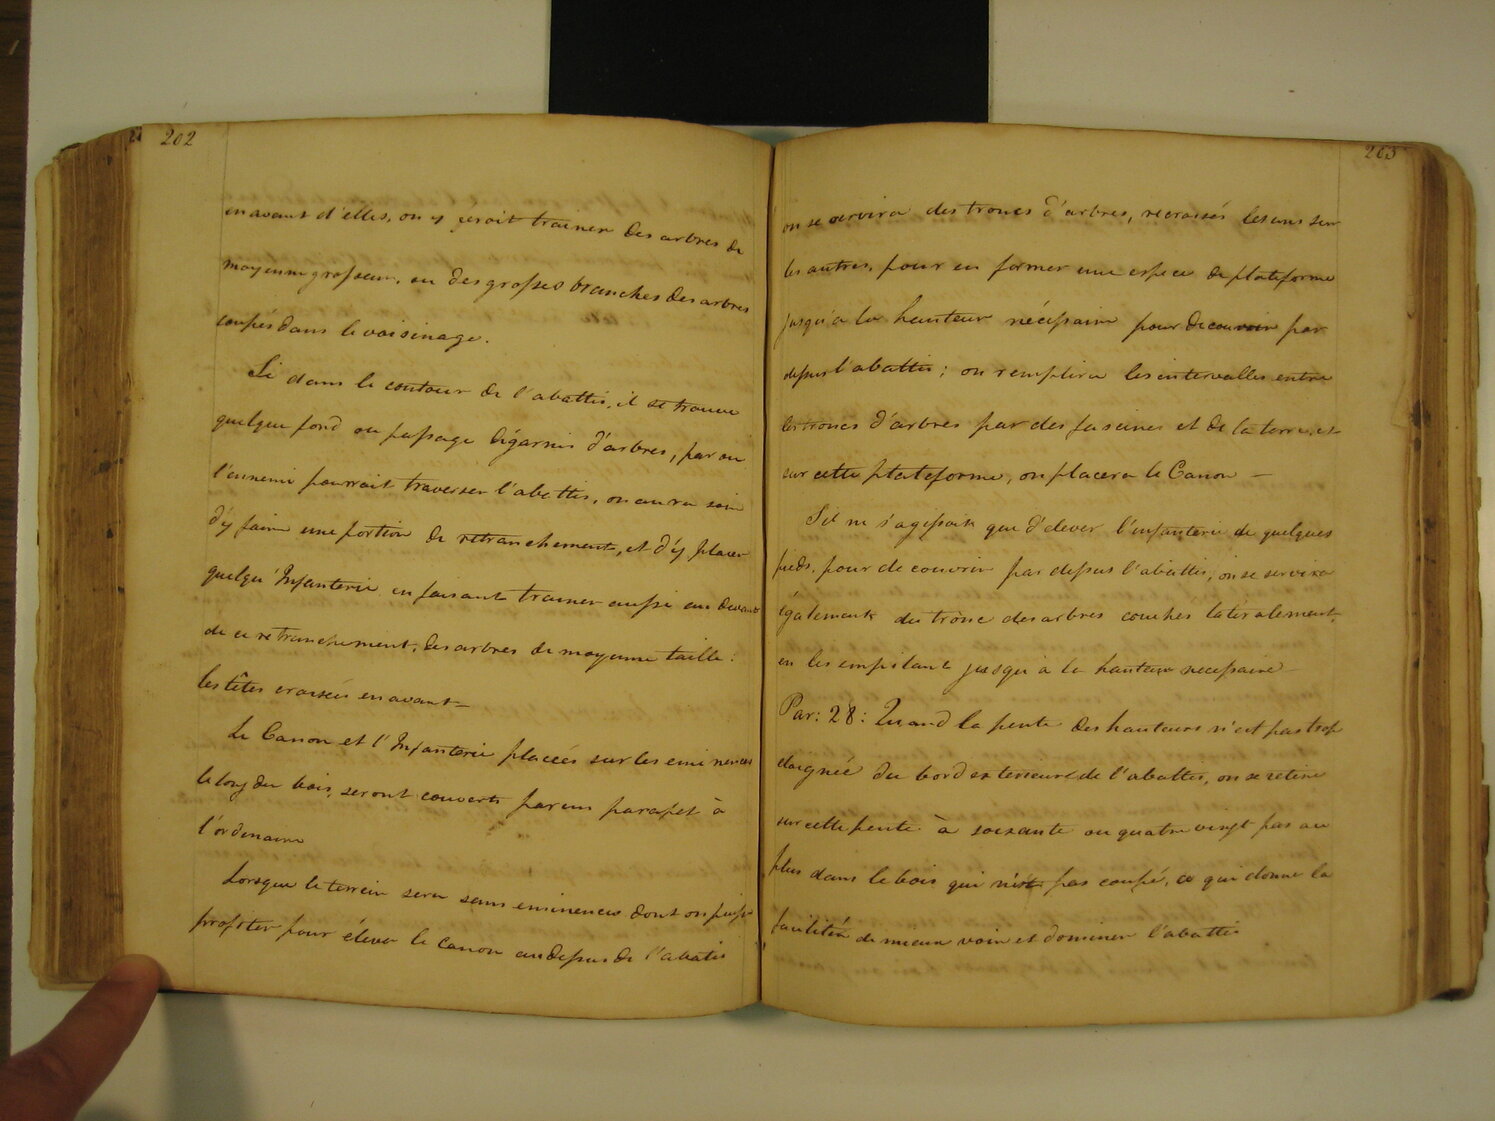 202
en avant d'elles, on y feroit trainer des arbres de
moyenne grosseur, ou des grosses branches des arbres
coupés dans le voisinage.
Si dans le contour de l'abattis, il se trouve
quelque fond ou passage dégarnis d'arbres, par où
l'ennemi pourrait traverser l'abattis, on aura soin
d'y faire une portion de retranchement, et d'y placer
quelqu'Infanterie en faisant trainer aussi au devant
de ce retranchement, des arbres de moyenne taille:
les têtes croisées en avant—
Le Canon et l'Infanterie placées sur les eminences
le long du bois, seront couverts par un parapet à
l'ordinaire
Lorsque le terrein sera sans eminences dont on puisse
profiter pour élever le canon au dessus de l'abatis
203
on se servira des troncs d'arbres, recroisés les uns sur
les autres, pour en former une espece de plateforme
jusqu'à la hauteur nécessaire pour decouvrir par
dessus l'abattis; on remplira les intervalles entre
les troncs d'arbres par des fascines et de la terre, et
sur cette plateforme, on placera le Canon —
S'il ne s'agissoit que d'elever l'infanterie de quelques
pieds, pour decouvrir par dessus l'abattis, on se servira
également du tronc des arbres couchés lateralement,
en les empilant jusqu'à la hauteur necessaire
Par: 28: Quand la pente des hauteurs n'est pas trop
eloignée du bord exterieur de l'abattis, on se retire
sur cette pente à soixante ou quatre vingt pas au
plus dans le bois qui n'est pas coupé, ce qui donne la
facilité de mieux voir et dominer l'abattis